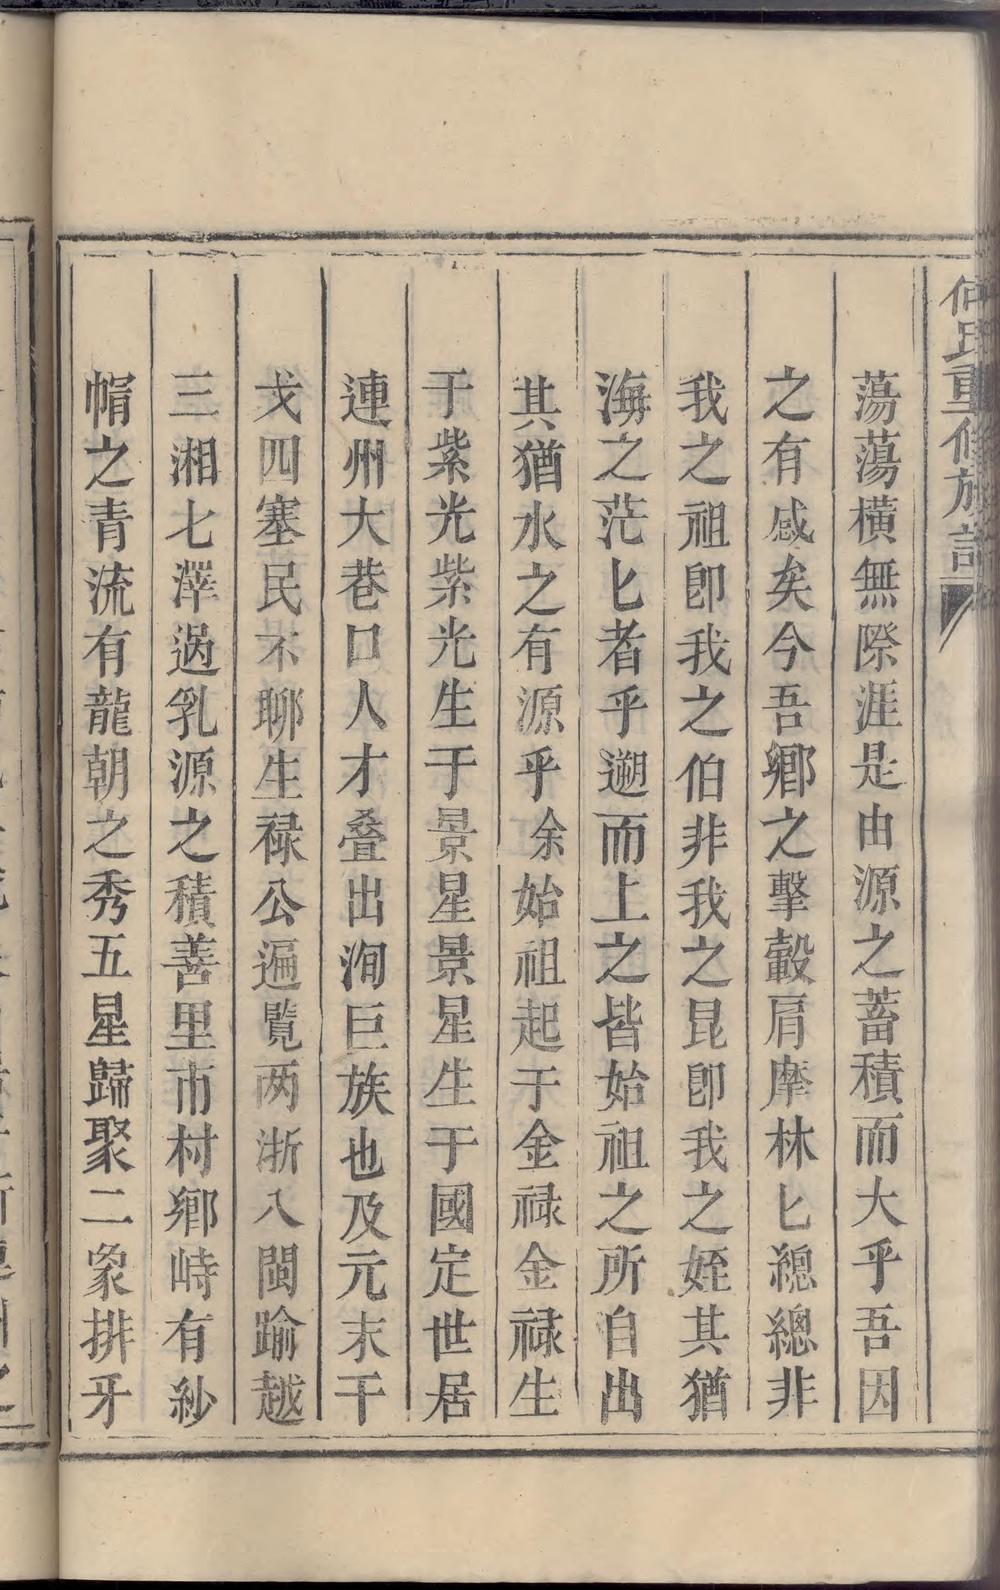 何氏重修族譜
蕩蕩橫無際涯是由源之蓄積而大乎吾因
之有感矣今吾鄉之擊轂肩摩林匕總總非
我之祖卽我之伯非我之昆卽我之姪其猶
海之茫匕者乎遡而上之皆始祖之所自出
其猶水之有源乎余始祖起于金禄金禄生
于紫光紫光生于景星景星生于國定世居
連州大巷口人才叠出洵巨族也及元末干
戈四塞民不聊生禄公遍覽两浙入閩踰越
三湘七澤過乳源之積善里市村鄉峙有紗
帽之青流有龍朝之秀五星歸聚二象排牙